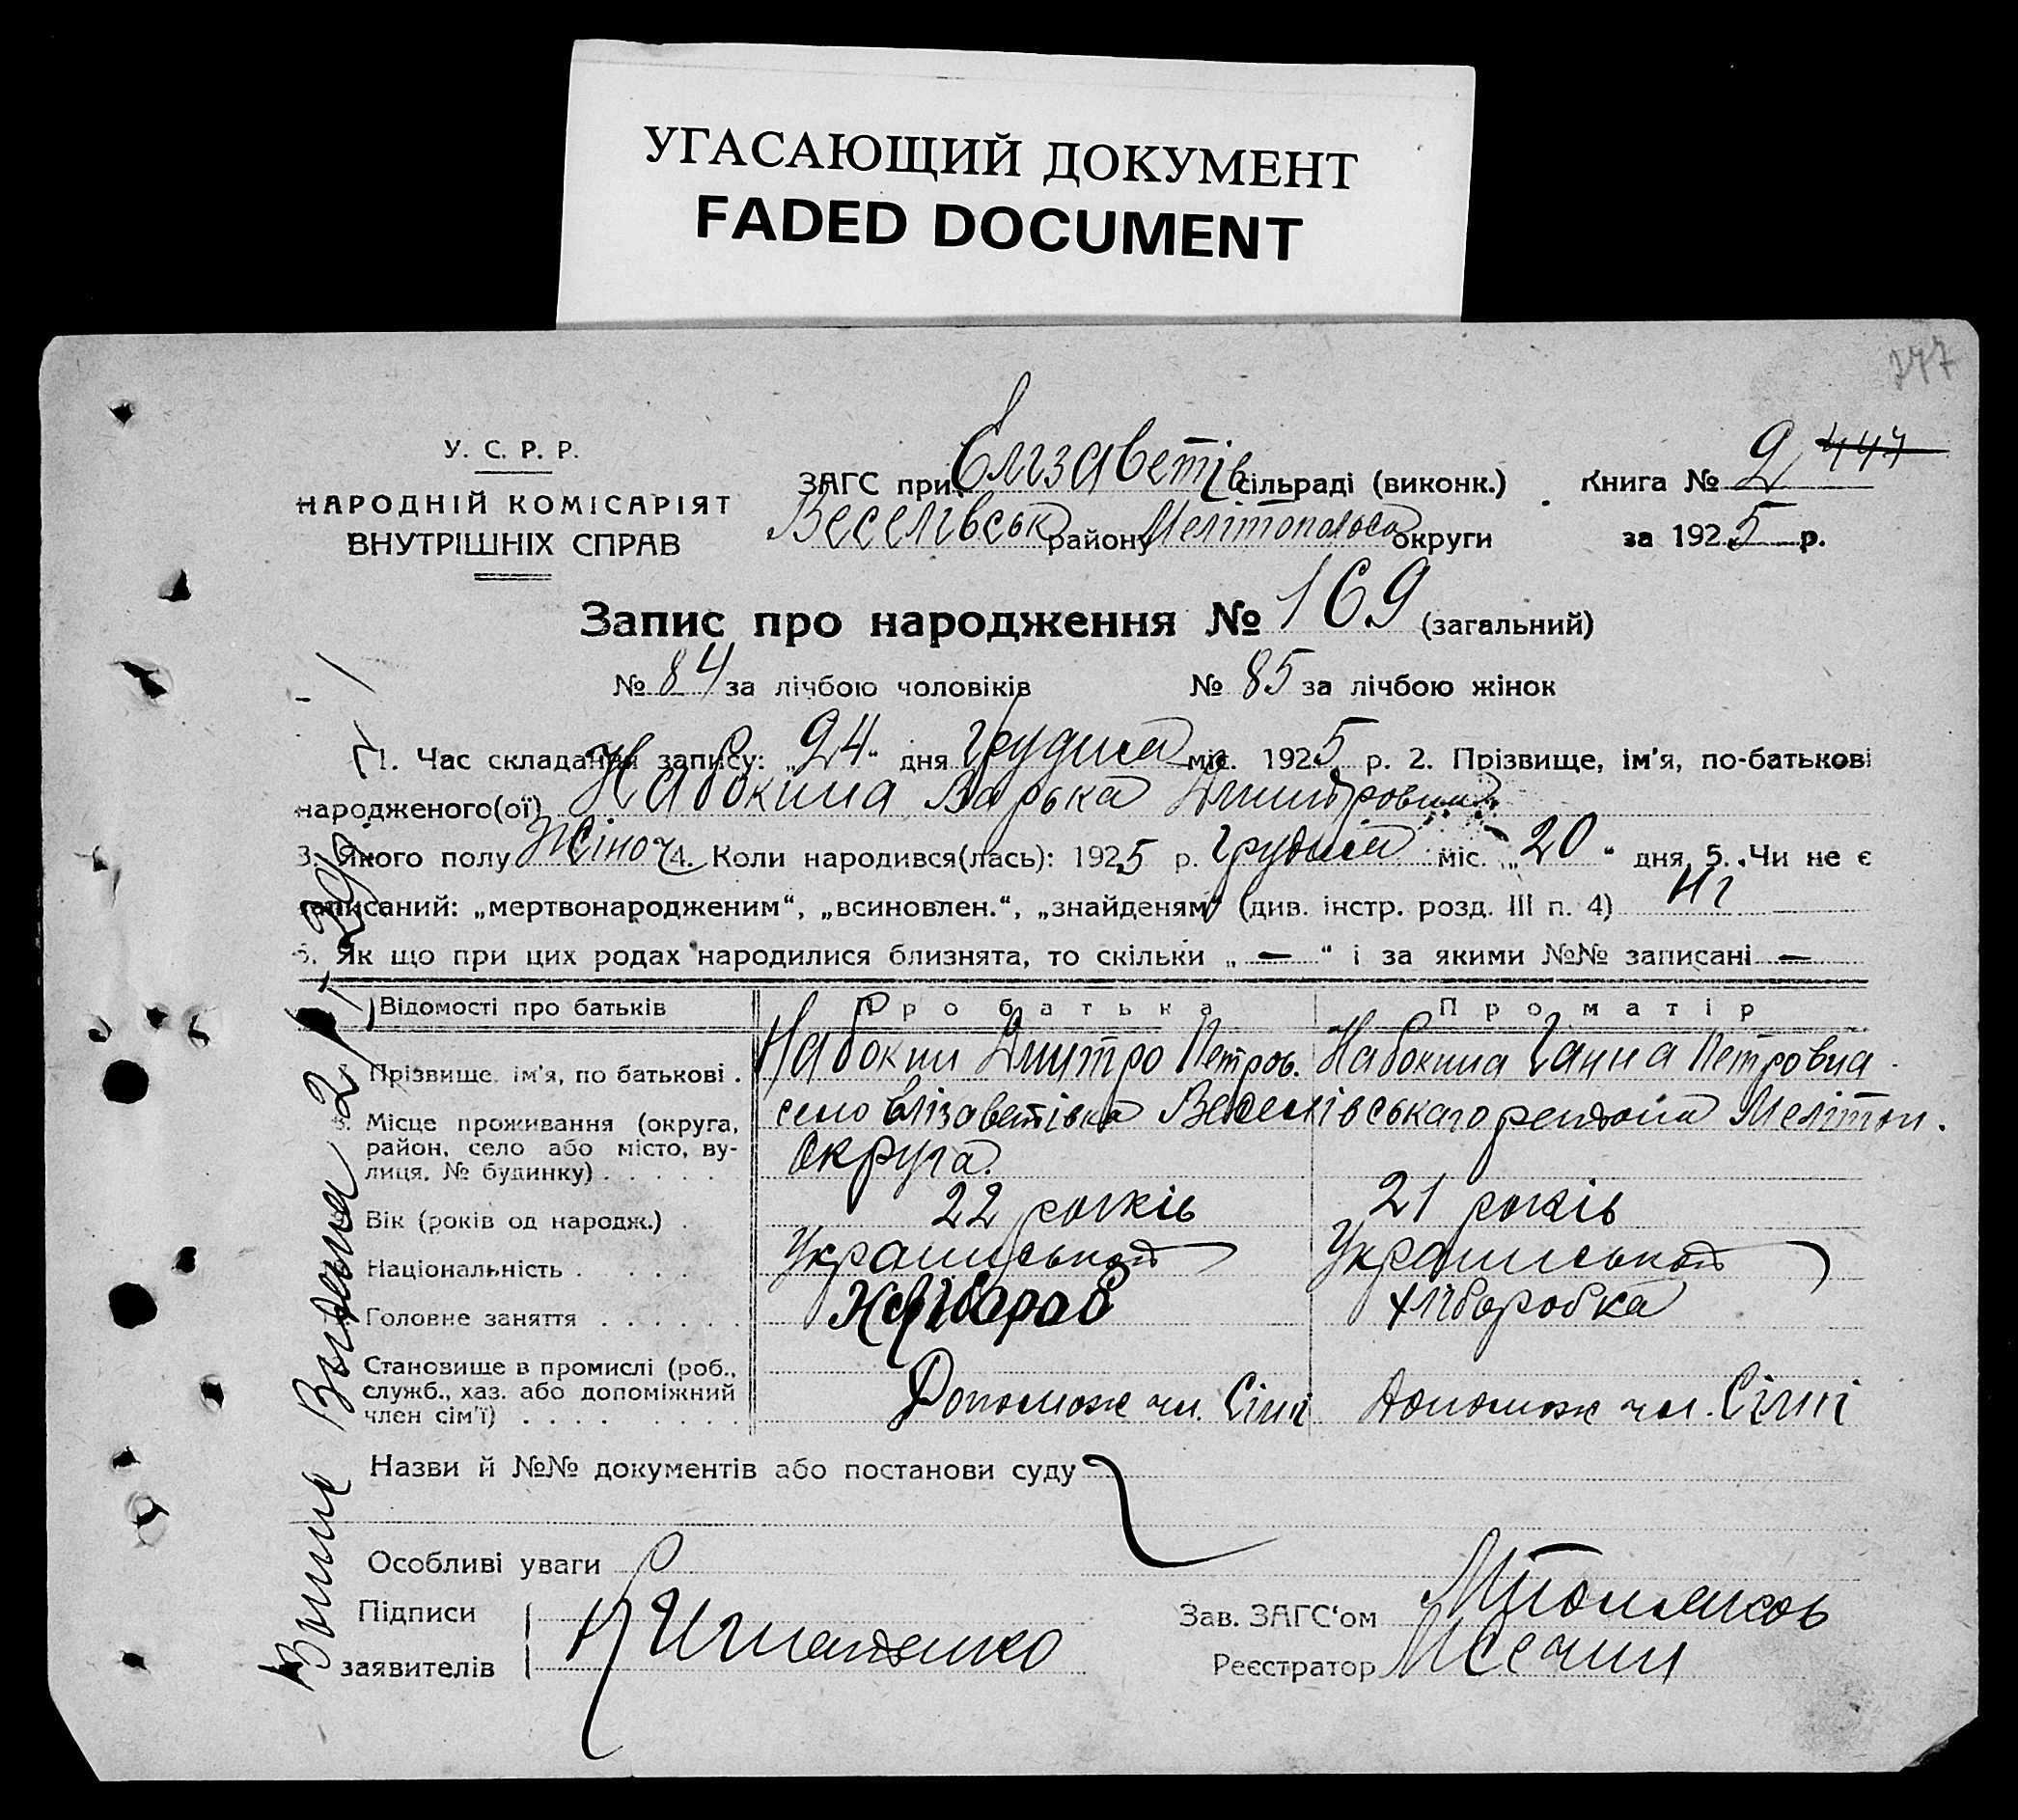 УГАСАЮЩИЙ ДОКУМЕНТ
FADED DOCUMENT
У. С. Р. Р.
НАРОДНІЙ КОМІСАРІЯТ
ВНУТРІШНІХ СПРАВ
ЗАГС при Єлізаветів сільраді (виконк.)
Книга № 2
Веселівськ району Мелітопольськ округи
за 1925 р.
Запис про народження № 169 (загальний)
№ 84 за лічбою чоловіків № 85 за лічбою жінок
1. Час складання запису: „24" дня грудня міс. 1925 р. 2. Прізвище, ім'я, по-батькові
народженого(ої) Набокина Варька Дмитровна
3. Якого полу Жіноч 4. Коли народився(лась): 1925 р. грудня міс. „20" дня, 5. Чи не є
записаний: „мертвонародженим", „всиновлен.", „знайденям" (див. інстр. розд. III п. 4) Ні
6. Як що при цих родах народилися близнята, то скільки „—" і за якими №№ записані —
Відомості про батьків Про батька Про матір
Прізвище, ім'я, по батькові . Набокин Дмитро Петров. Набокина Ганна Петровна
Місце проживання (округа,
район, село або місто, ву-
лиця, № будинку) . . . . .
село Єлізаветівка Веселівського Меліттоп.
округа.
Вік (років од народж.) . 22 років 21 років
Національність . . . . . Украинськой Украинськой
Головне заняття . . . . . . Хлібороб хліборобка
Становище в промислі (роб.,
служб., хаз. або допоміжний
член сім'ї) . . . . . . . .
Допомож чл. Сімї Допомож чл. Сімї
Назви й №№ документів або постанови суду
Особливі уваги
Підписи
заявителів
Зав. ЗАГС'ом
Реєстратор